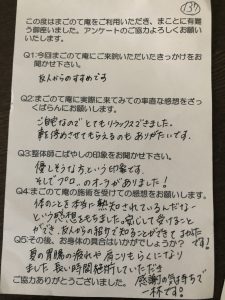 137
この度はまごのて庵をご利用いただき、まことに有難
う御座いました。アンケートのご協力よろしくお願い
いたします。
Q1:今回まごのて庵にご来院いただいたきっかけを
お聞かせ下さい。
友人からのすすめです
Q2:まごのて庵に実際に来てみての率直な感想をざっ
くばらんにお願いします。
ご自宅なのでとてもリラックスできました。
駐停めさせてもらえるのもありがたいです。
Q3:整体師こばやしの印象をお聞かせ下さい。
優しそうな方という印象です。
そして"プロ"のオーラがありました!
Q4:まごのて庵の施術を受けての感想をお願いします。
体のことを本当に熟知されているんだな…
という感想をもちました。安心して受けること
ができ、友人からの紹介で知ることができて
です!
Q5:その後、お身体の具合はいかがでしょうか?
夏の胃腸の疲れや肩こりもらくになり
ました 長い時間施術していただき
感謝の気持ちで
一杯です!
ご協力ありがとうございました。